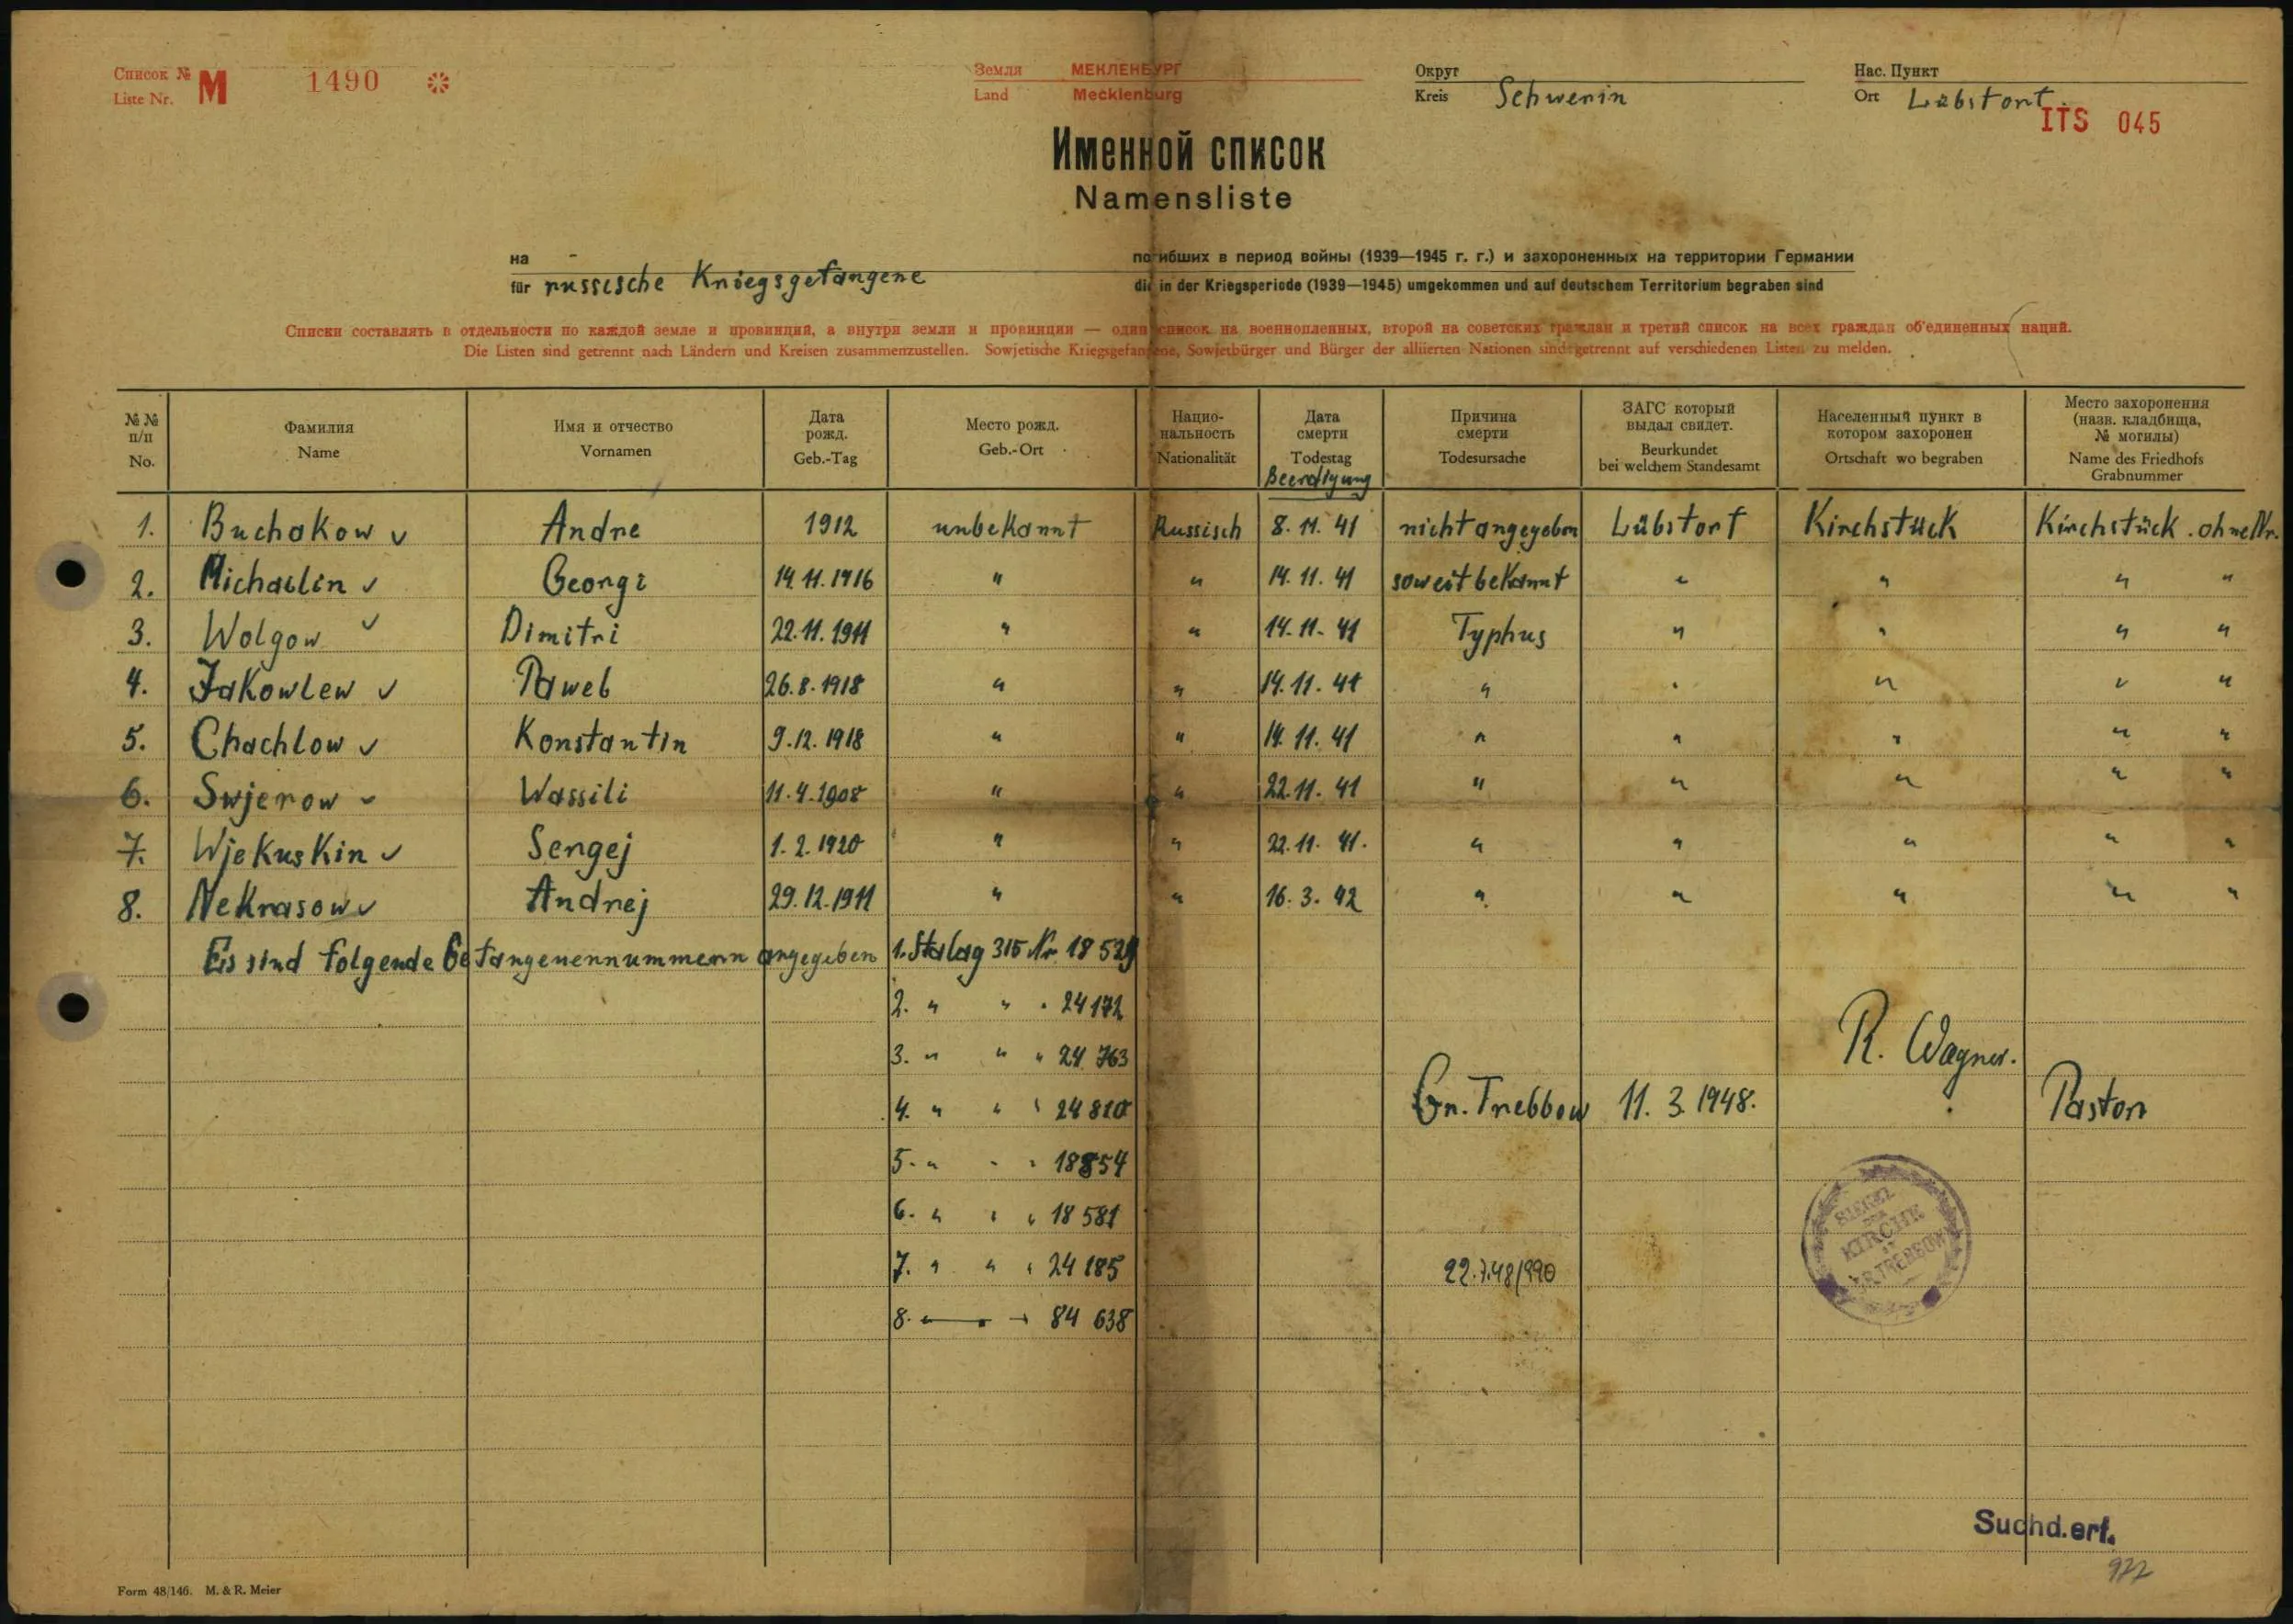 Список № М 1490
Liste Nr.
Земля МЕКЛЕНБУРГ
Land Mecklenburg
Округ
Kreis Schwerin
Нас. Пункт
Ort Lübstorf
ITS 045
Именной список
Namensliste
на
für russische Kriegsgefangene
погибших в период войны (1939—1945 г. г.) и захороненных на территории Германии
die in der Kriegsperiode (1939—1945) umgekommen und auf deutschem Territorium begraben sind
Списки составлять в отдельности по каждой земле и провинций, а внутри земли и провинции — один список на военнопленных, второй на советских граждан и третий список на всех граждан об'единенных наций.
Die Listen sind getrennt nach Ländern und Kreisen zusammenzustellen. Sowjetische Kriegsgefangene, Sowjetbürger und Bürger der alliierten Nationen sind getrennt auf verschiedenen Listen zu melden.
№ № п/п No.
Фамилия Name
Имя и отчество Vornamen
Дата рожд. Geb.-Tag
Место рожд. Geb.-Ort
Нацио-нальность Nationalität
Дата смерти Todestag Beerdigung
Причина смерти Todesursache
ЗАГС который выдал свидет. Beurkundet bei welchem Standesamt
Населенный пункт в котором захоронен Ortschaft wo begraben
Место захоронения (назв. кладбища, № могилы) Name des Friedhofs Grabnummer
1. Buchakow ✓ Andre 1912 unbekannt Russisch 8. 11. 41 nicht angegeben Lübstorf Kirchstück Kirchstück . ohne Nr.
2. Michailin ✓ Georgi 14. 11. 1916 " " 14. 11. 41 soweit bekannt " " " "
3. Wolgow ✓ Dimitri 22. 11. 1911 " " 14. 11. 41 Typhus " " " "
4. Jakowlew ✓ Paweb 26. 8. 1918 " " 14. 11. 41 " " " " "
5. Chachlow ✓ Konstantin 9. 12. 1918 " " 14. 11. 41 " " " " "
6. Swjerow ✓ Wassili 11. 4. 1908 " " 22. 11. 41 " " " " "
7. Wjekuskin ✓ Sergej 1. 2. 1920 " " 22. 11. 41. " " " " "
8. Nekrasow ✓ Andrej 29. 12. 1911 " " 16. 3. 42 " " " " "
Es sind folgende Gefangenennummern angegeben 1. Stalag 315 Nr 18 529
2. " " " 24 172
3. " " " 24 763
R. Wagner.
4. " " " 24 810
Gr. Trebbow 11. 3. 1948. Pastor
5. " " " 18854
6. " " " 18 581
SIEGEL DER KIRCHE ZU GR. TREBBOW
7. " " " 24 185
22.7.48/990
8. 84 638
Suchd.erf.
977
Form 48/146. M. & R. Meier